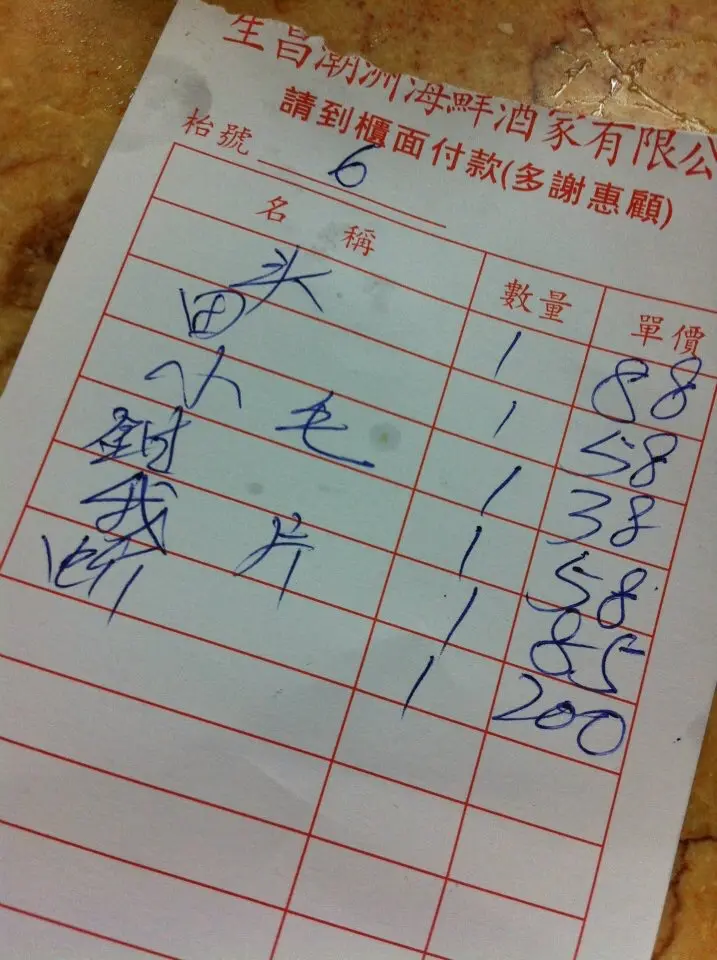 生昌潮洲海鮮酒家有限公
請到櫃面付款(多謝惠顧)
枱號 6
名稱 數量 單價
头 1 88
田 1 58
小 毛 1 38
1 58
我 片 1 85
1 200